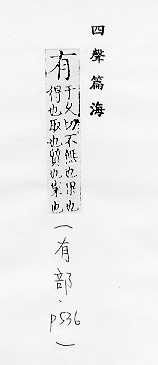 四聲篇海
有
于久切不無也果也
得也取也質也宷也
(有部、p536)